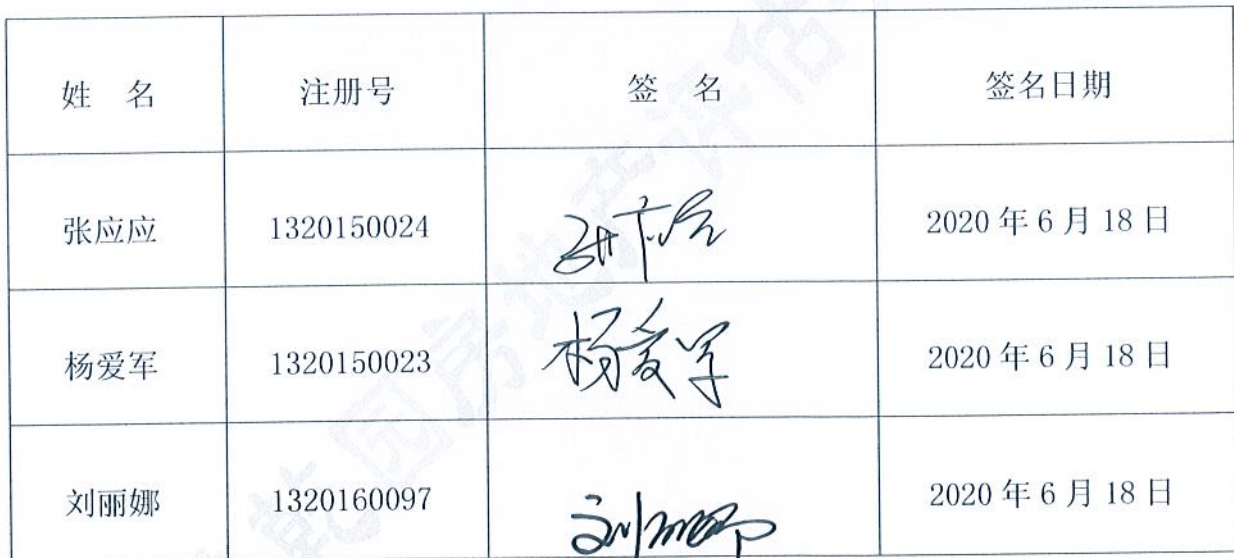 姓 名 注册号 签 名 签名日期
张应应 1320150024 张应应 2020年6月18日
杨爱军 1320150023 杨爱军 2020年6月18日
刘丽娜 1320160097 刘丽娜 2020年6月18日
房地产评估